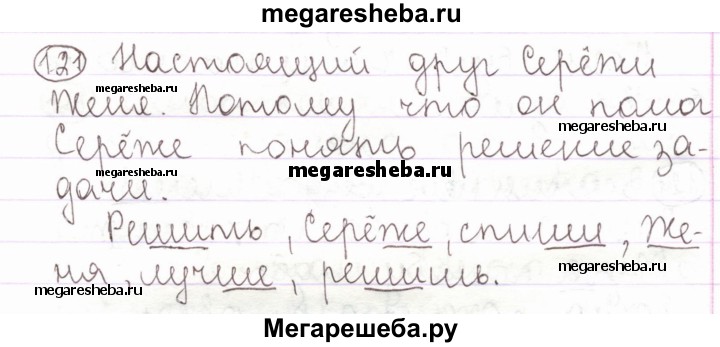 megaresheba.ru
121 Настоящий друг Серёжи
Женя. Потому что он помог
megaresheba.ru
megaresheba.ru
Серёже понять решение за-
megaresheba.ru
дачи.
Решить, Серёже, спиши, Же-
megaresheba.ru
ня, лучше, решишь.
megaresheba.ru
megaresheba.ru
Мегарешеба.ру